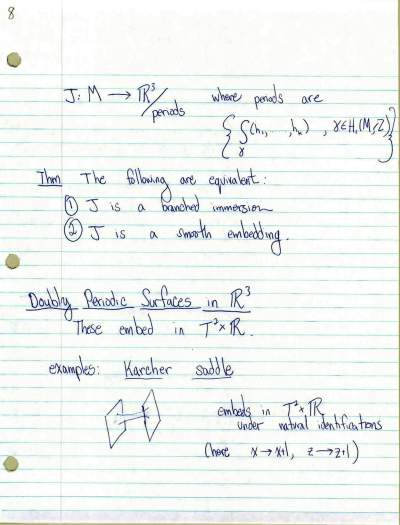 8
J: M → ℝ³/periods where periods are
{ ∫_γ (h₁, ..., hₙ) , γ ∈ H₁(M,ℤ) }
Thm The following are equivalent:
① J is a branched immersion
② J is a smooth embedding.
Doubly Periodic Surfaces in ℝ³
These embed in T²×ℝ.
examples: Karcher saddle
embeds in T²×ℝ
under natural identifications
(here x→x+1, z→z+1)